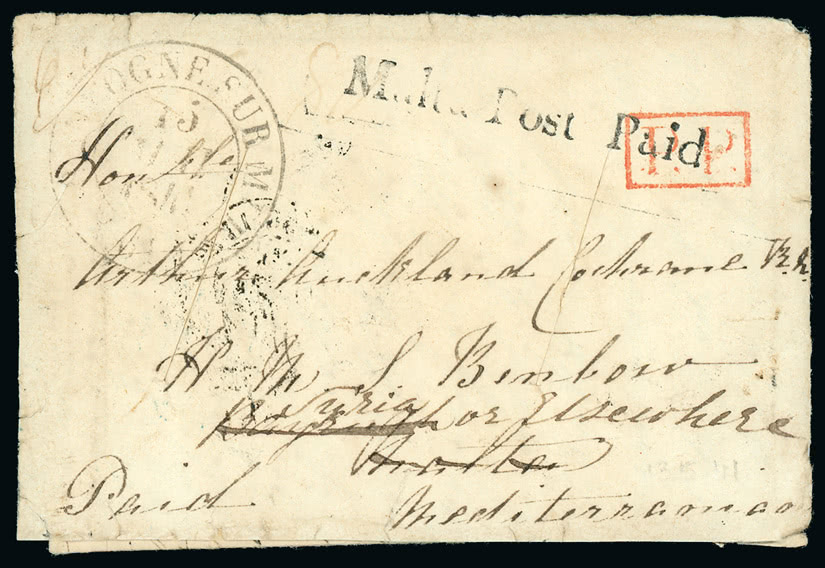 OGNE SUR M
15
Malta Post Paid
P.P.
Honble
Arthur Auckland Cochrane R.N.
H M S Benbow
Syria
or Elsewhere
Malta
Paid
Mediterranian